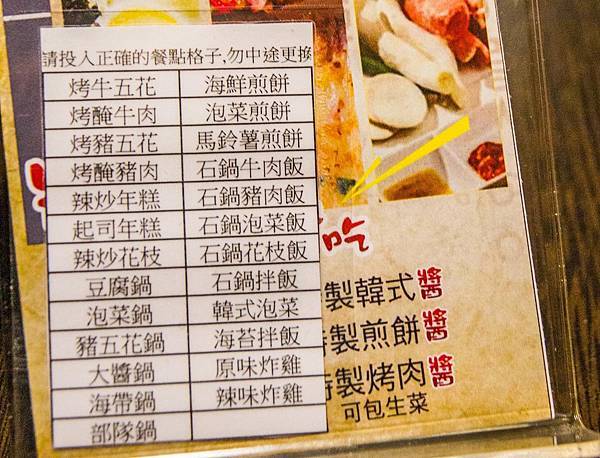 請投入正確的餐點格子,勿中途更換
烤牛五花 海鮮煎餅
烤醃牛肉 泡菜煎餅
烤豬五花 馬鈴薯煎餅
烤醃豬肉 石鍋牛肉飯
辣炒年糕 石鍋豬肉飯
起司年糕 石鍋泡菜飯
辣炒花枝 石鍋花枝飯
豆腐鍋 石鍋拌飯
泡菜鍋 韓式泡菜
豬五花鍋 海苔拌飯
大醬鍋 原味炸雞
海帶鍋 辣味炸雞
部隊鍋
吃
製韓式醬
製煎餅醬
特製烤肉醬
可包生菜